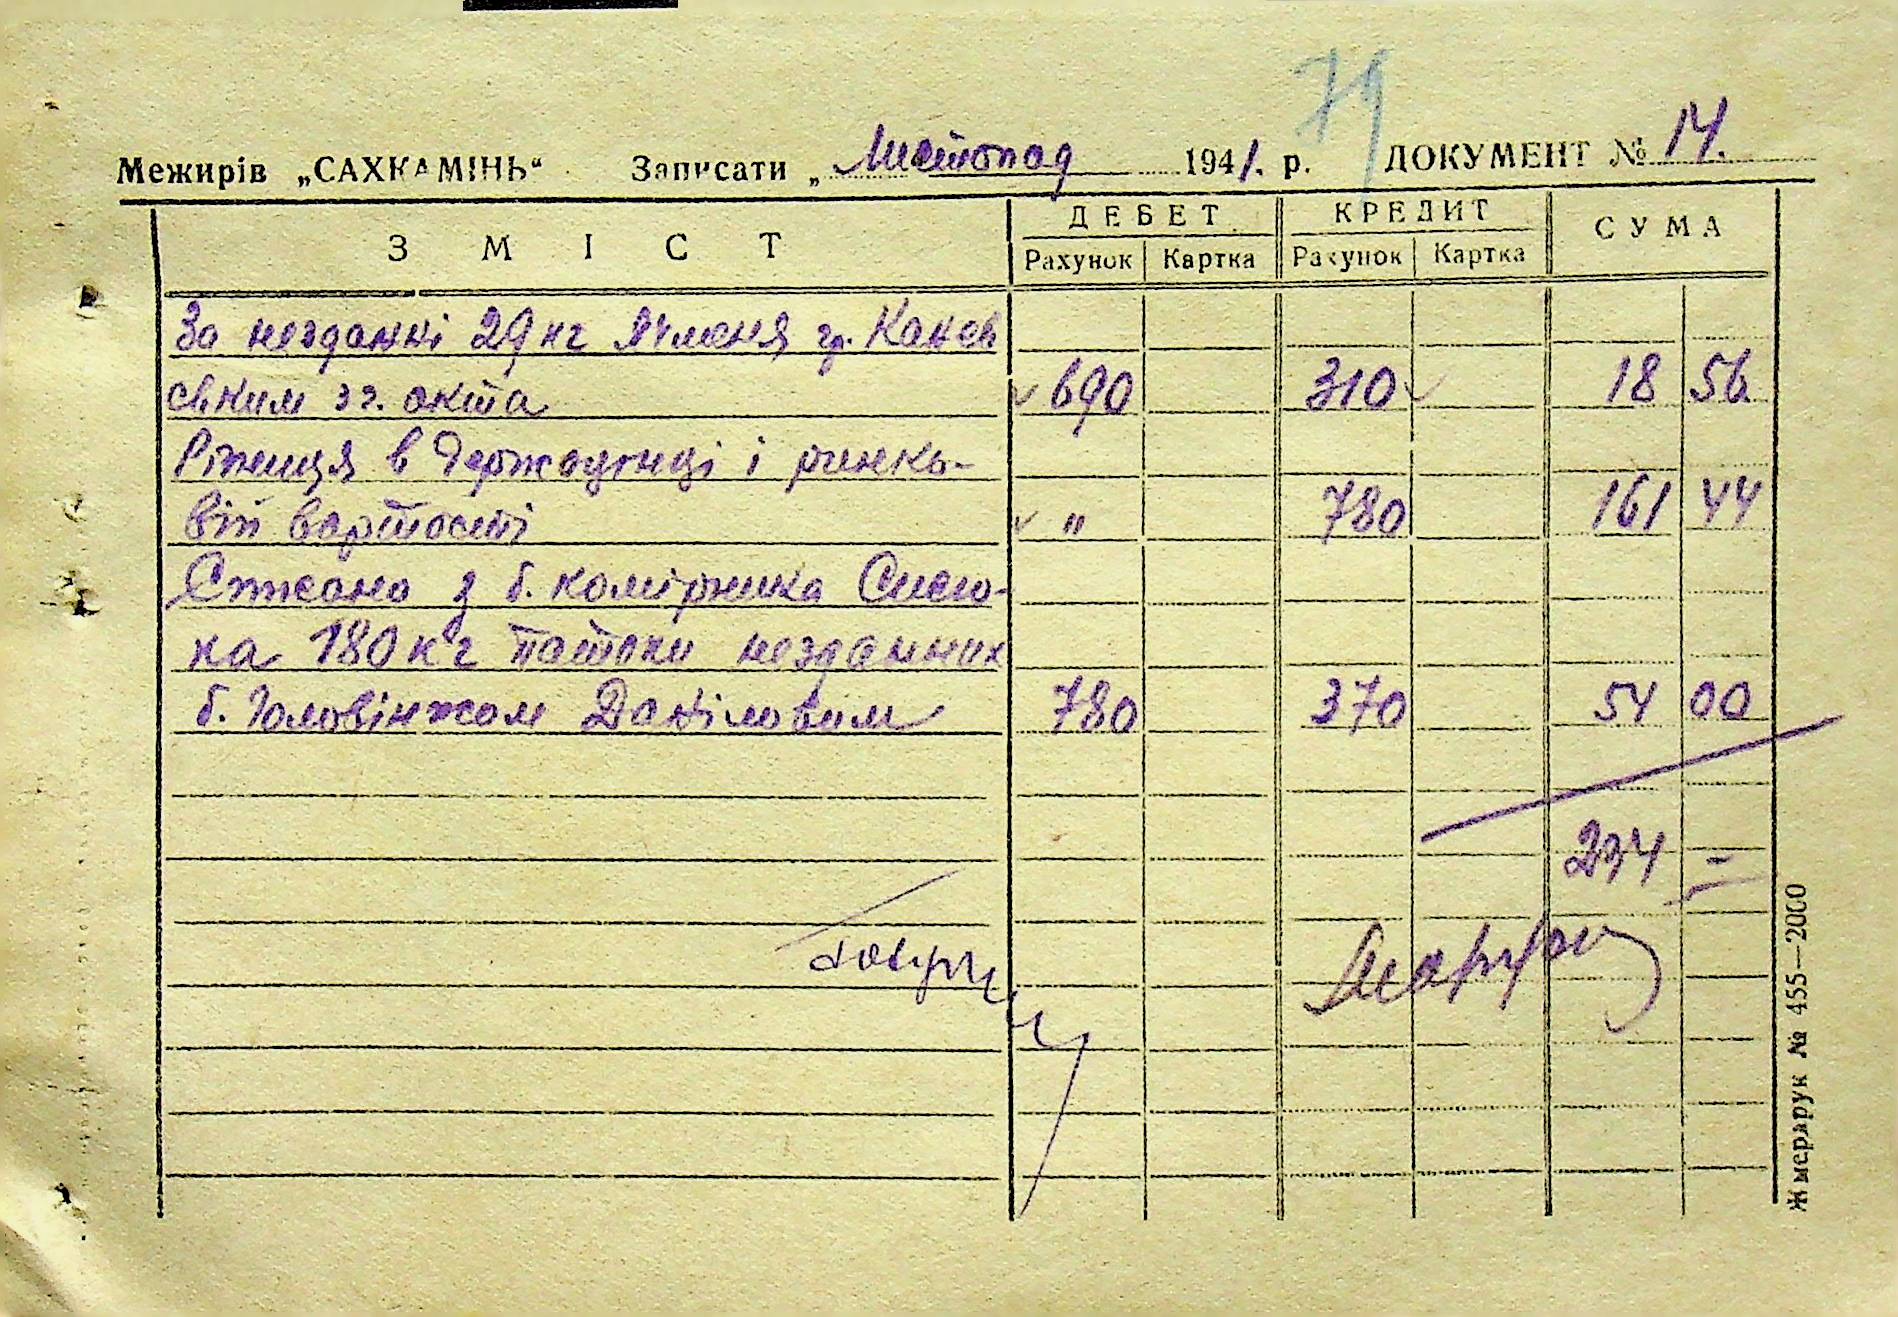 79
Межирів „САХКАМІНЬ“ Записати „ Листопад 1941. р. ДОКУМЕНТ № 14.
ЗМІСТ ДЕБЕТ КРЕДИТ СУМА
Рахунок Картка Рахунок Картка
За нездані 29 кг ячменя гр. Канев
ським зг. акта 690 310 18 56
Ріжниця в держодинці і ринко-
вій вартості " 780 161 44
Стжано з б. комірника Сисю-
ка 180 кг патоки незданних
б. Головінжом Даніловим 780 370 54 00
234 =
Жмердрук № 455—2000